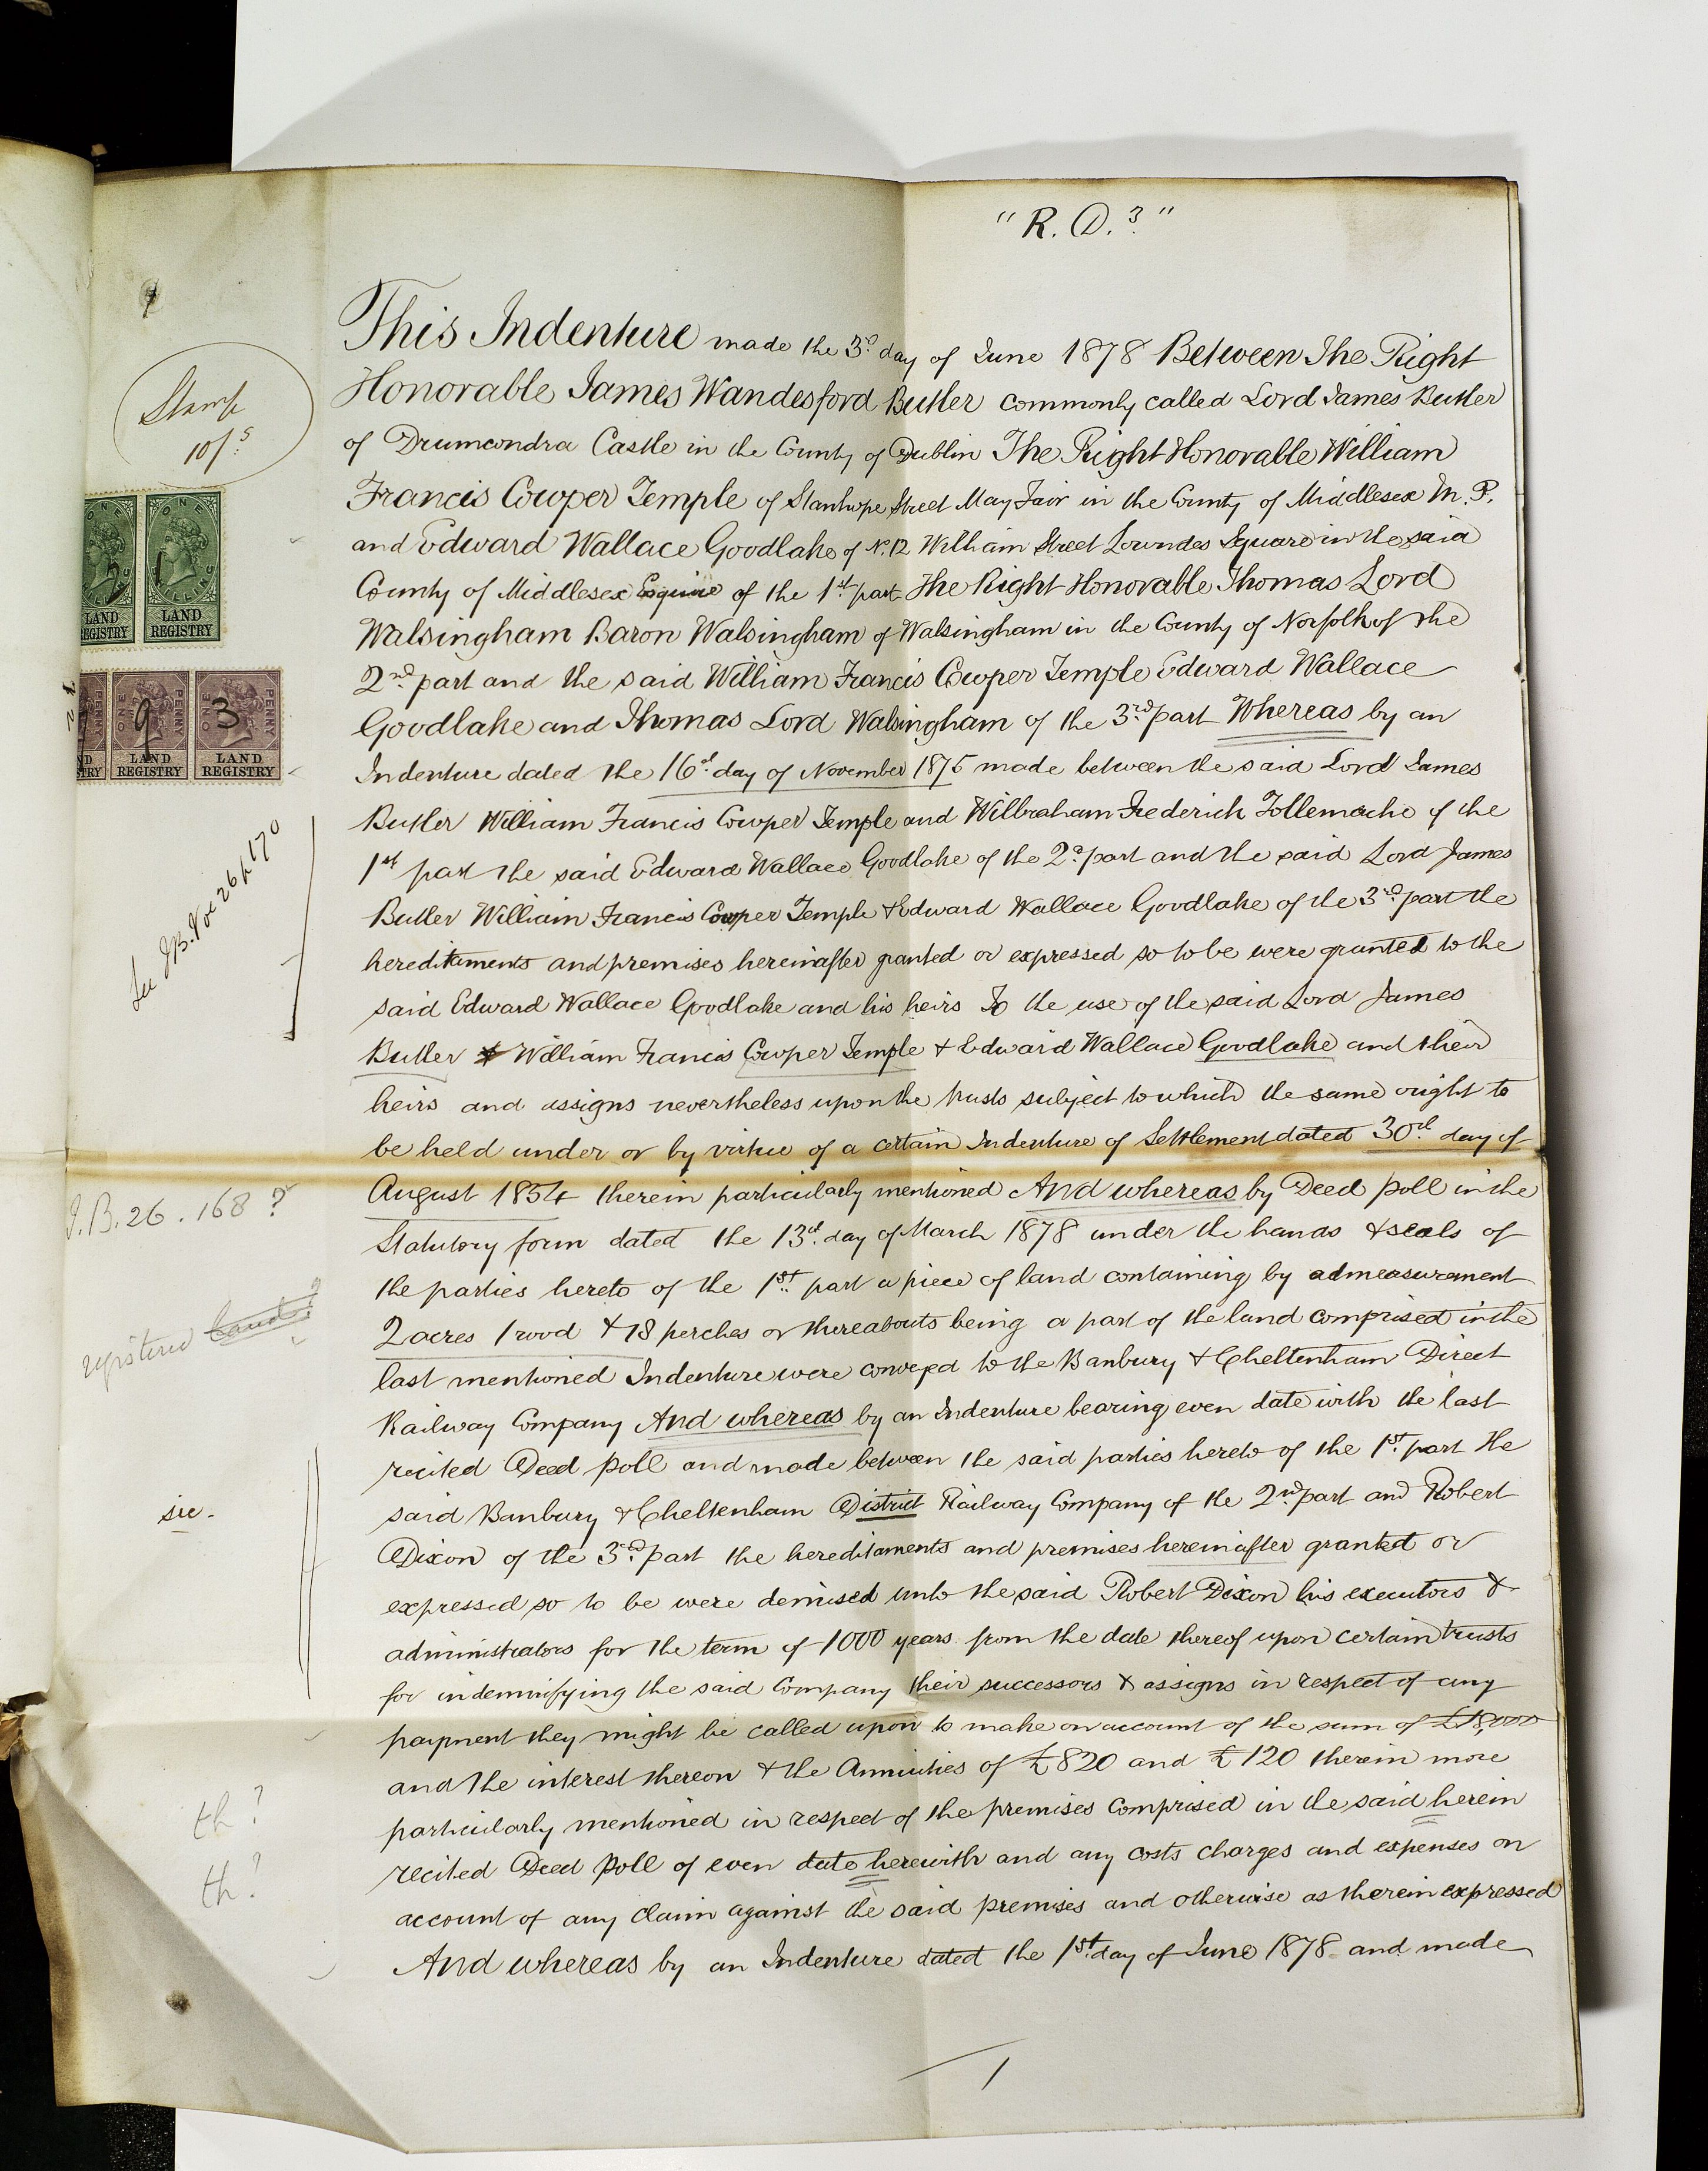 "R.D.3"
This Indenture made the 3d. day of June 1878 Between The Right
Honorable James Wandesford Butler commonly called Lord James Butler
of Drumcondra Castle in the County of Dublin The Right Honorable William
Francis Cowper Temple of Stanhope Street May Fair in the County of Middlesex M.P.
and Edward Wallace Goodlake of No. 12 William Street Lowndes Square in the said
County of Middlesex Esquire of the 1st. part The Right Honorable Thomas Lord
Walsingham Baron Walsingham of Walsingham in the County of Norfolk of the
2nd. part and the said William Francis Cowper Temple Edward Wallace
Goodlake and Thomas Lord Walsingham of the 3rd. part Whereas by an
Indenture dated the 16th. day of November 1875 made between the said Lord James
Butler William Francis Cowper Temple and Wilbraham Frederick Tollemache of the
1st part the said Edward Wallace Goodlake of the 2d. part and the said Lord James
Butler William Francis Cowper Temple & Edward Wallace Goodlake of the 3rd. part the
hereditaments and premises hereinafter granted or expressed so to be were granted to the
said Edward Wallace Goodlake and his heirs To the use of the said Lord James
Butler & William Francis Cowper Temple & Edward Wallace Goodlake and their
heirs and assigns nevertheless upon the trusts subject to which the same ought to
be held under or by virtue of a certain Indenture of Settlement dated 30th. day of
August 1854 therein particularly mentioned And whereas by Deed poll in the
Statutory form dated the 13th. day of March 1878 under the hands & seals of
the parties hereto of the 1st. part a piece of land containing by admeasurement
2 acres 1 rood & 18 perches or thereabouts being a part of the land comprised in the
last mentioned Indenture were conveyed to the Banbury & Cheltenham Direct
Railway Company And whereas by an Indenture bearing even date with the last
recited Deed poll and made between the said parties hereto of the 1st. part the
said Banbury & Cheltenham District Railway Company of the 2nd. part and Robert
Dixon of the 3rd. part the hereditaments and premises hereinafter granted or
expressed so to be were demised unto the said Robert Dixon his executors &
administrators for the term of 1000 years from the date thereof upon certain trusts
for indemnifying the said Company their successors & assigns in respect of any
payment they might be called upon to make on account of the sum of £18,000
and the interest thereon & the Annuities of £820 and £120 therein more
particularly mentioned in respect of the premises comprised in the said herein
recited Deed Poll of even date herewith and any costs charges and expenses on
account of any claim against the said premises and otherwise as therein expressed
And whereas by an Indenture dated the 1st. day of June 1878 and made
1
Stamp
10/s.
ONE
LAND
REGISTRY
ONE
SHILLING
LAND
REGISTRY
9
ONE
PENNY
LAND
REGISTRY
3
ONE
PENNY
LAND
REGISTRY
See I.B. Vol 26 p 170
I.B. 26. 168 ?
registered land
sic.
th?
th?